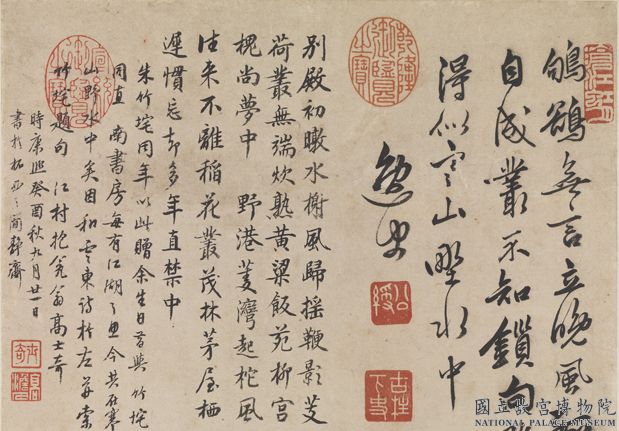 無言立晚風
自成叢不知鎖向
得似寒山野水中
逸史
公綬
古柱下史
乾隆御覽之寶
別殿初暾水榭風歸搖鞭影芰
荷叢無端炊熟黃粱飯苑柳宮
槐尚夢中 野港菱灣起柁風
往來不離稻花叢茂林茅屋栖
遲慣忘却多年直禁中
朱竹垞同年以此贈余生日昔與竹垞
同直 南書房每有江湖之思今共在寒
山野水中矣因和雲東詩於左并索
竹垞題句 江村抱瓮翁高士奇
時康熙癸酉秋九月廿一日
書於柘西之簡靜齋
國立故宮博物院
NATIONAL PALACE MUSEUM